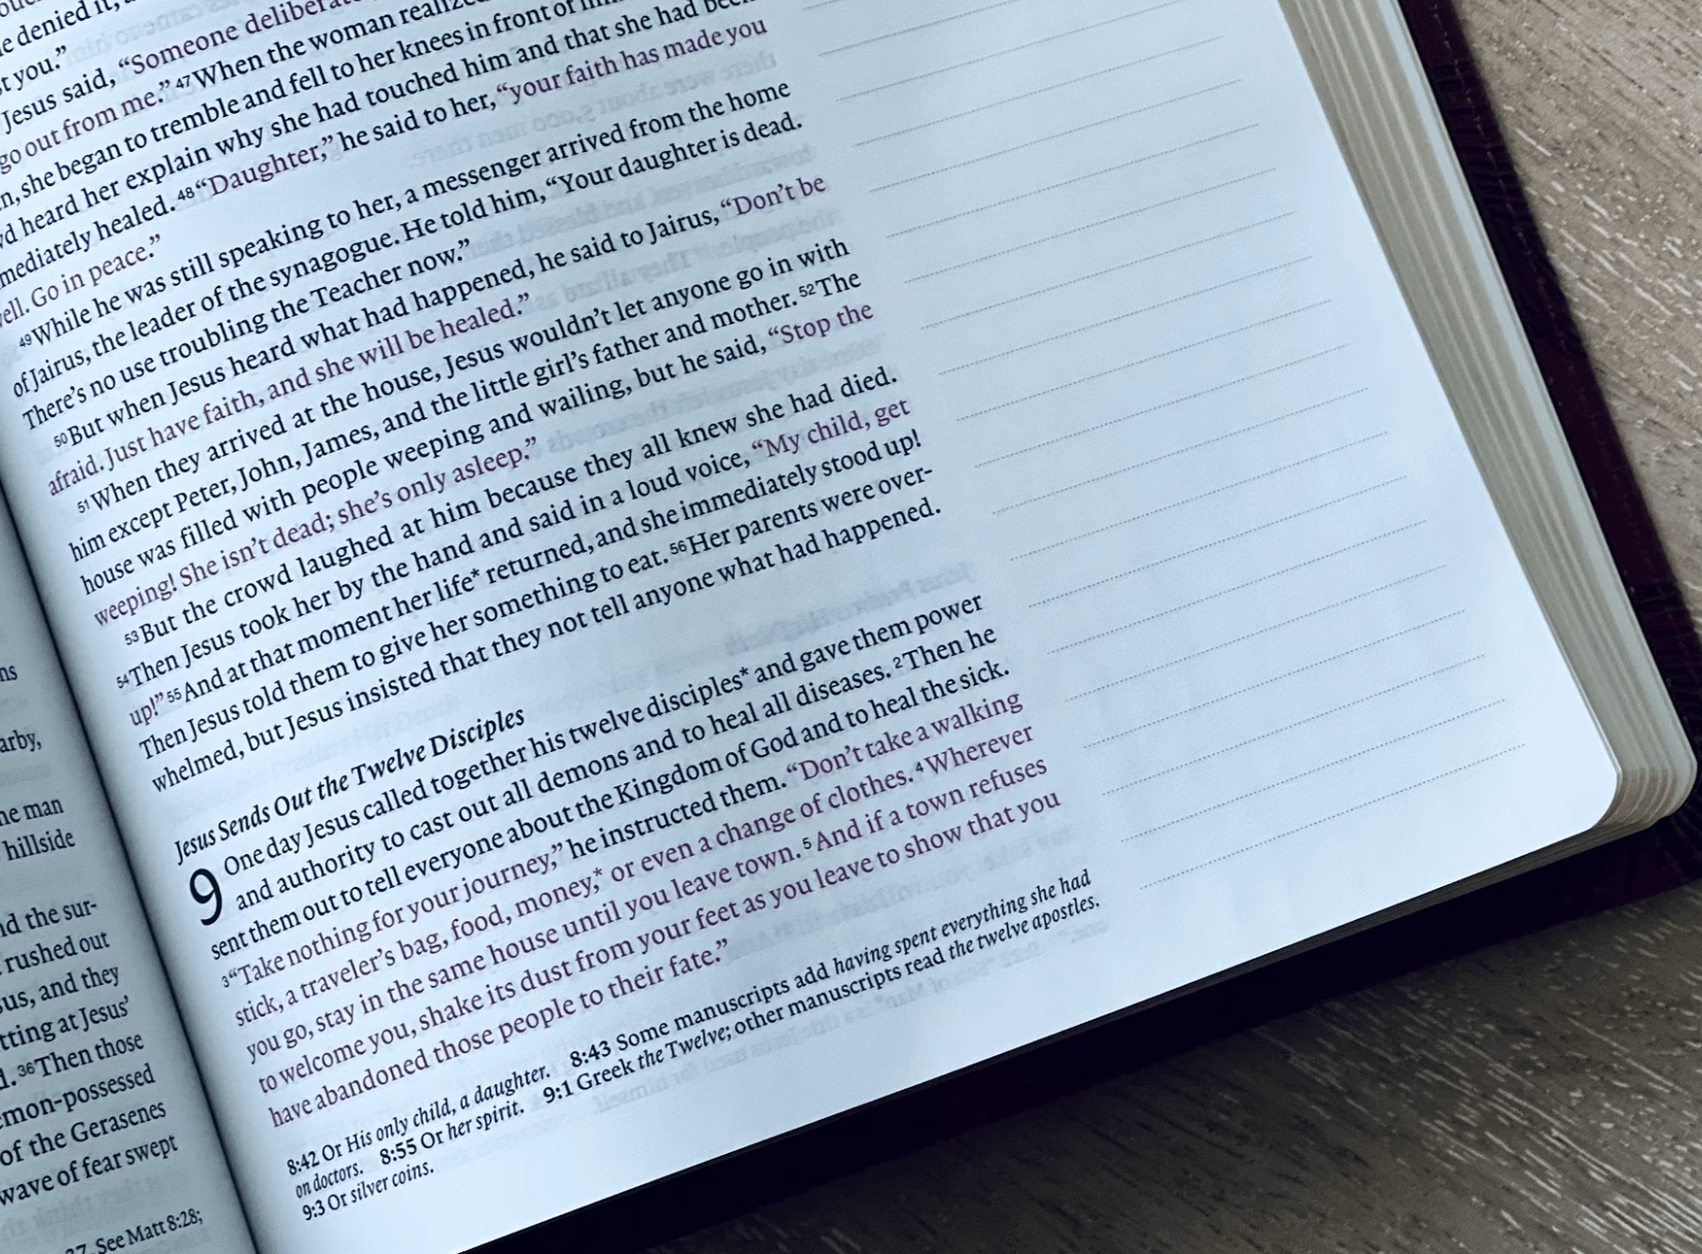 ns
arby,
he man
hillside
nd the sur-
rushed out
sus, and they
tting at Jesus’
d. 36Then those
mon-possessed
of the Gerasenes
wave of fear swept
See Matt 8:28;
e denied it,
t you.”
Jesus said, “Someone deliberat
go out from me.” 47When the woman realize
n, she began to tremble and fell to her knees in front of
d heard her explain why she had touched him and that she had been
mediately healed. 48“Daughter,” he said to her, “your faith has made you
ell. Go in peace.”
49While he was still speaking to her, a messenger arrived from the home
of Jairus, the leader of the synagogue. He told him, “Your daughter is dead.
There’s no use troubling the Teacher now.”
50But when Jesus heard what had happened, he said to Jairus, “Don’t be
afraid. Just have faith, and she will be healed.”
51When they arrived at the house, Jesus wouldn’t let anyone go in with
him except Peter, John, James, and the little girl’s father and mother. 52The
house was filled with people weeping and wailing, but he said, “Stop the
weeping! She isn’t dead; she’s only asleep.”
53But the crowd laughed at him because they all knew she had died.
54Then Jesus took her by the hand and said in a loud voice, “My child, get
up!” 55And at that moment her life* returned, and she immediately stood up!
Then Jesus told them to give her something to eat. 56Her parents were over-
whelmed, but Jesus insisted that they not tell anyone what had happened.
Jesus Sends Out the Twelve Disciples
9 One day Jesus called together his twelve disciples* and gave them power
and authority to cast out all demons and to heal all diseases. 2Then he
sent them out to tell everyone about the Kingdom of God and to heal the sick.
3“Take nothing for your journey,” he instructed them. “Don’t take a walking
stick, a traveler’s bag, food, money,* or even a change of clothes. 4Wherever
you go, stay in the same house until you leave town. 5And if a town refuses
to welcome you, shake its dust from your feet as you leave to show that you
have abandoned those people to their fate.”
8:42 Or His only child, a daughter. 8:43 Some manuscripts add having spent everything she had
on doctors. 8:55 Or her spirit. 9:1 Greek the Twelve; other manuscripts read the twelve apostles.
9:3 Or silver coins.